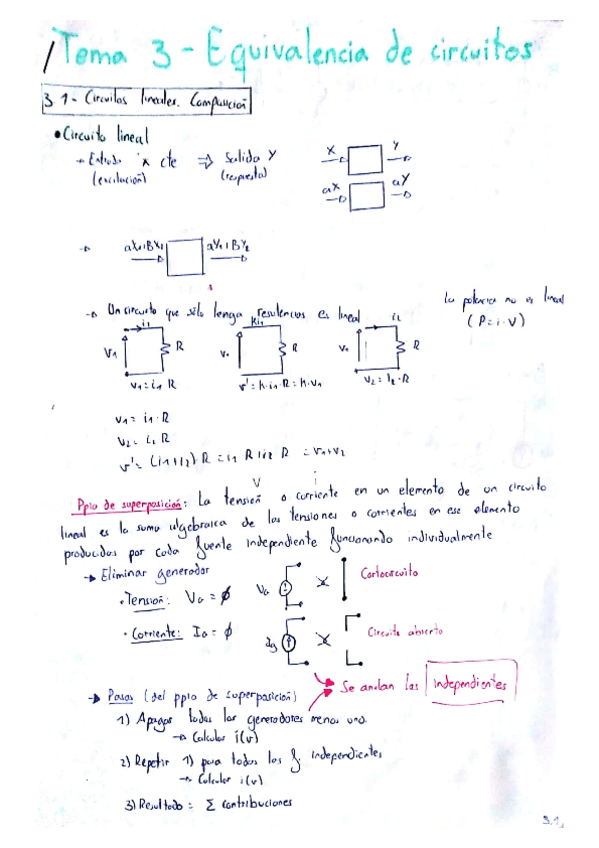 Tema 3 - Equivalencia de circuitos
3.1- Circuitos lineales. Composición
• Circuito lineal
Entrada x cte ⇒ Salida Y
(excitación) (respuesta)
X Y
aX aY
aX1+BX2 aY1+BY2
Un circuito que sólo tenga resistencias es lineal
La potencia no es lineal
(P=i·V)
i1 ki1 i2
V1 R R R
V1=i1 R V'=k·i1·R=k·V1 V2=i2·R
V1= i1·R
V2= i2 R
V'= (i1+i2)·R = i1 R + i2 R = V1+V2
V i
Ppio de superposición: La tensión o corriente en un elemento de un circuito
lineal es la suma algebraica de las tensiones o corrientes en ese elemento
producidas por cada fuente independiente funcionando individualmente
Eliminar generador
• Tensión: VG = ∅ VG Cortocircuito
• Corriente: IG = ∅ Ig Circuito abierto
Se anulan las independientes
Pasos (del ppio de superposición)
1) Apagar todas los generadores menos uno.
Calcular i(v)
2) Repetir 1) para todas las f. independientes
Calcular i(v)
3) Resultado = Σ contribuciones
3.1